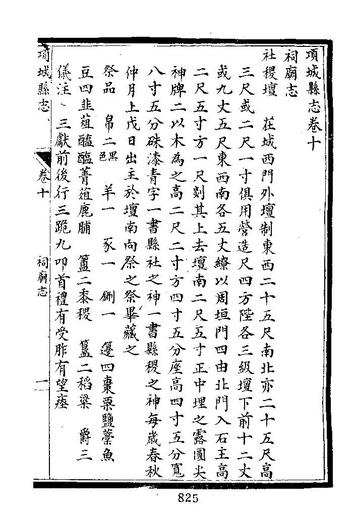 項城縣志卷十
祠廟志
社稷壇 在城西門外壇制東西二十五尺南北亦二十五尺高
三尺或二尺一寸俱用營造尺四方陛各三級壇下前十二丈
或九丈五尺東西南各五丈繚以周垣門四由北門入石主高
二尺五寸方一尺刻其上去壇南二尺五寸正中埋之露圓尖
神牌二以木為之高二尺二寸方四寸五分座高四寸五分寬
八寸五分硃漆青字一書縣社之神一書縣稷之神每歲春秋
仲月上戊日出主於壇南向祭之祭畢藏之
祭品 帛二黑色 羊一 豕一 鉶一 籩四棗栗鹽藁魚
豆四韭菹醯醢菁菹鹿脯 簠二黍稷 簋二稻粱 爵三
儀注 三獻前後行三跪九叩首禮有受胙有望瘞
項城縣志 卷十 祠廟志 一
825